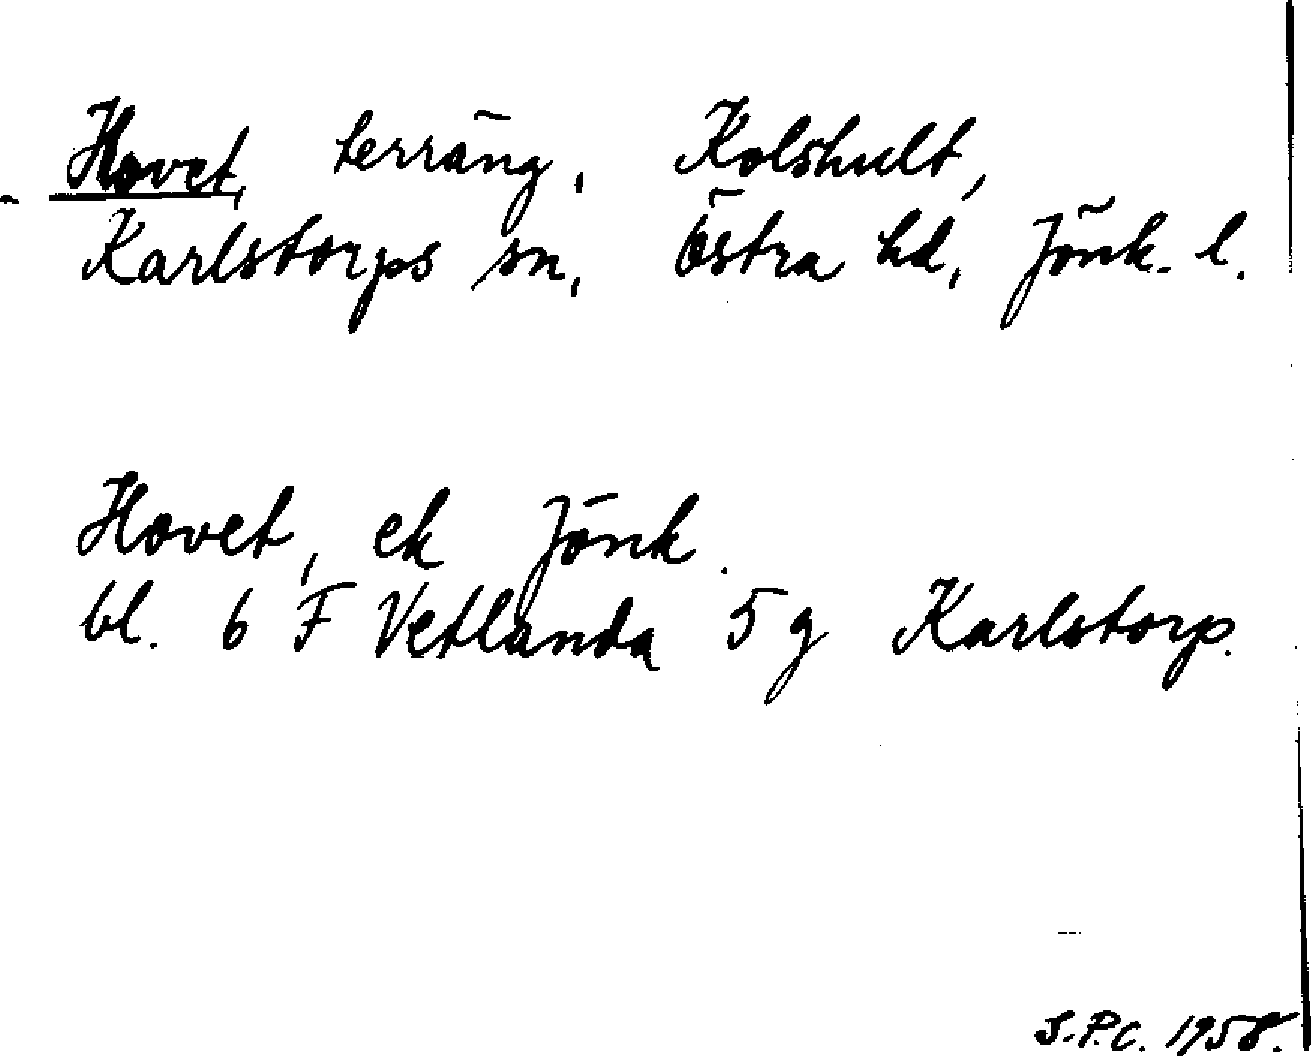 Hovet, terräng, Kolshult,
Karlstorps sn, Östra hd, Jönk. l.
Hovet, ek Jönk.
bl. 6 F Vetlanda 5 g Karlstorp.
S.P.C. 1958.